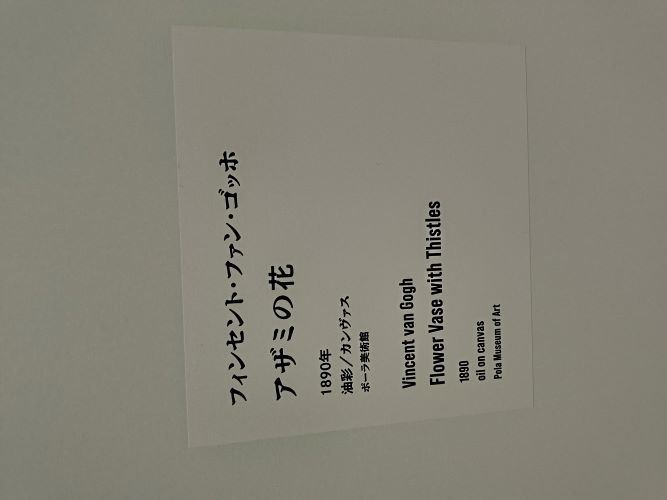 フィンセント・ファン・ゴッホ
アザミの花
1890年
油彩／カンヴァス
ポーラ美術館
Vincent van Gogh
Flower Vase with Thistles
1890
oil on canvas
Pola Museum of Art